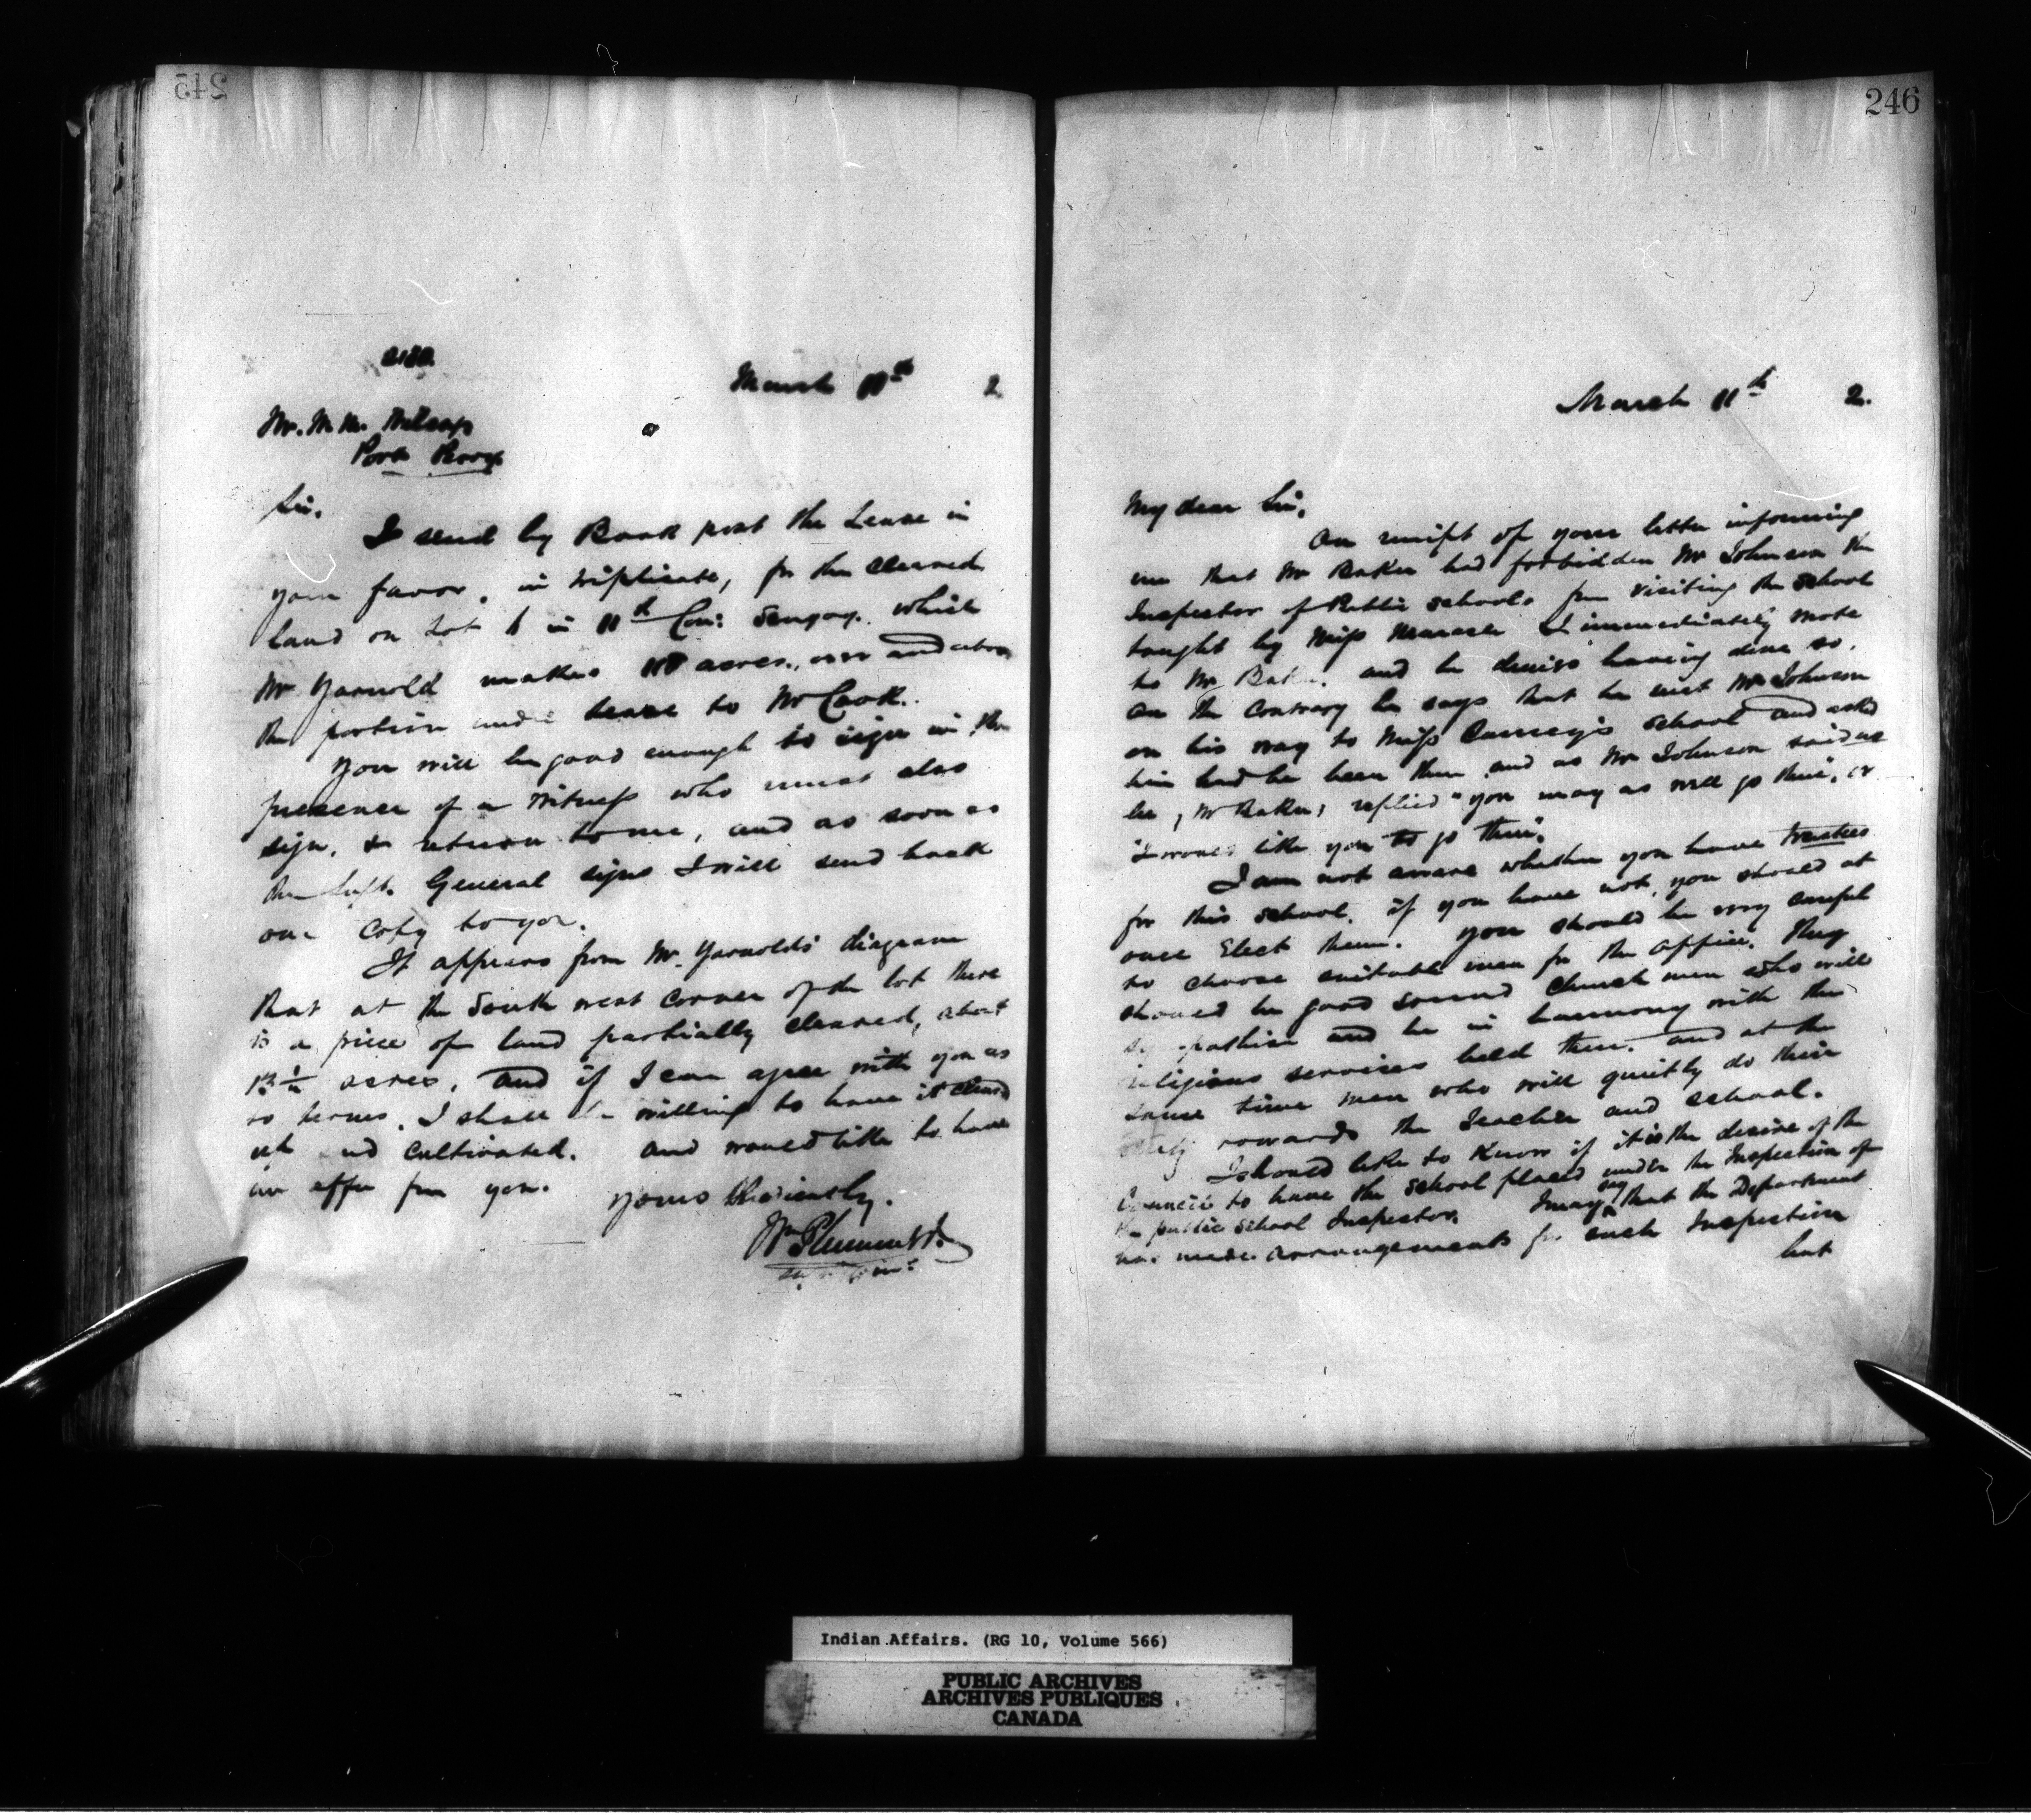 245
March 11th 2
Port Perry
Sir,
I send by Book post the Lease in
your favor, in triplicate, for the cleared
land on Lot 1 in 11th Con: Scugog. which
Mr Yarnold makes acres, over and above
the portion under lease to Mr Cook.
You will be good enough to sign in the
presence of a witness who must also
sign, & return to me, and as soon as
the Supt. General signs I will send back
one copy to you.
It appears from Mr. Yarnold's diagram
that at the South west corner of the lot there
is a piece of land partially cleared, about
acres. and if I can agree with you as
to terms, I shall be willing to have it cleared
up and cultivated. and would like to have
an offer from you.
Yours Obediently.
Wm Plummer
246
March 11th 2.
My dear Sir,
On receipt of your letter informing
me that Mr Baker had forbidden Mr Johnson the
Inspector of Public schools from visiting the school
taught by Miss Maracle I immediately wrote
to Mr Baker. and he denies having done so.
On the contrary he says that he met Mr Johnson
on his way to Miss school and asked
him had he been there and as Mr Johnson said no
he, Mr Baker, replied "you may as well go there, or
"I would like you to go there".
I am not aware whether you have trustees
for this school. if you have not, you should at
once Elect them. You should be very careful
to choose suitable men for the office. They
should be good sound Church men who will
sympathise and be in harmony with the
religious services held there. and at the
same time men who will quietly do their
duty towards the Teacher and school.
I should like to know if it is the desire of the
Council to have the school placed under the Inspection of
the public School Inspector. I may say that the Department
has made arrangements for such Inspection
but
Indian Affairs. (RG 10, Volume 566)
PUBLIC ARCHIVES
ARCHIVES PUBLIQUES
CANADA